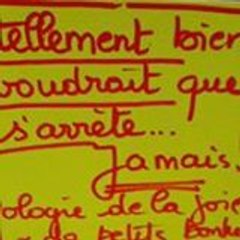 tellement bien
voudrait que
s'arrête...
Jamais.
ologie de la joie
de petits Bonhe